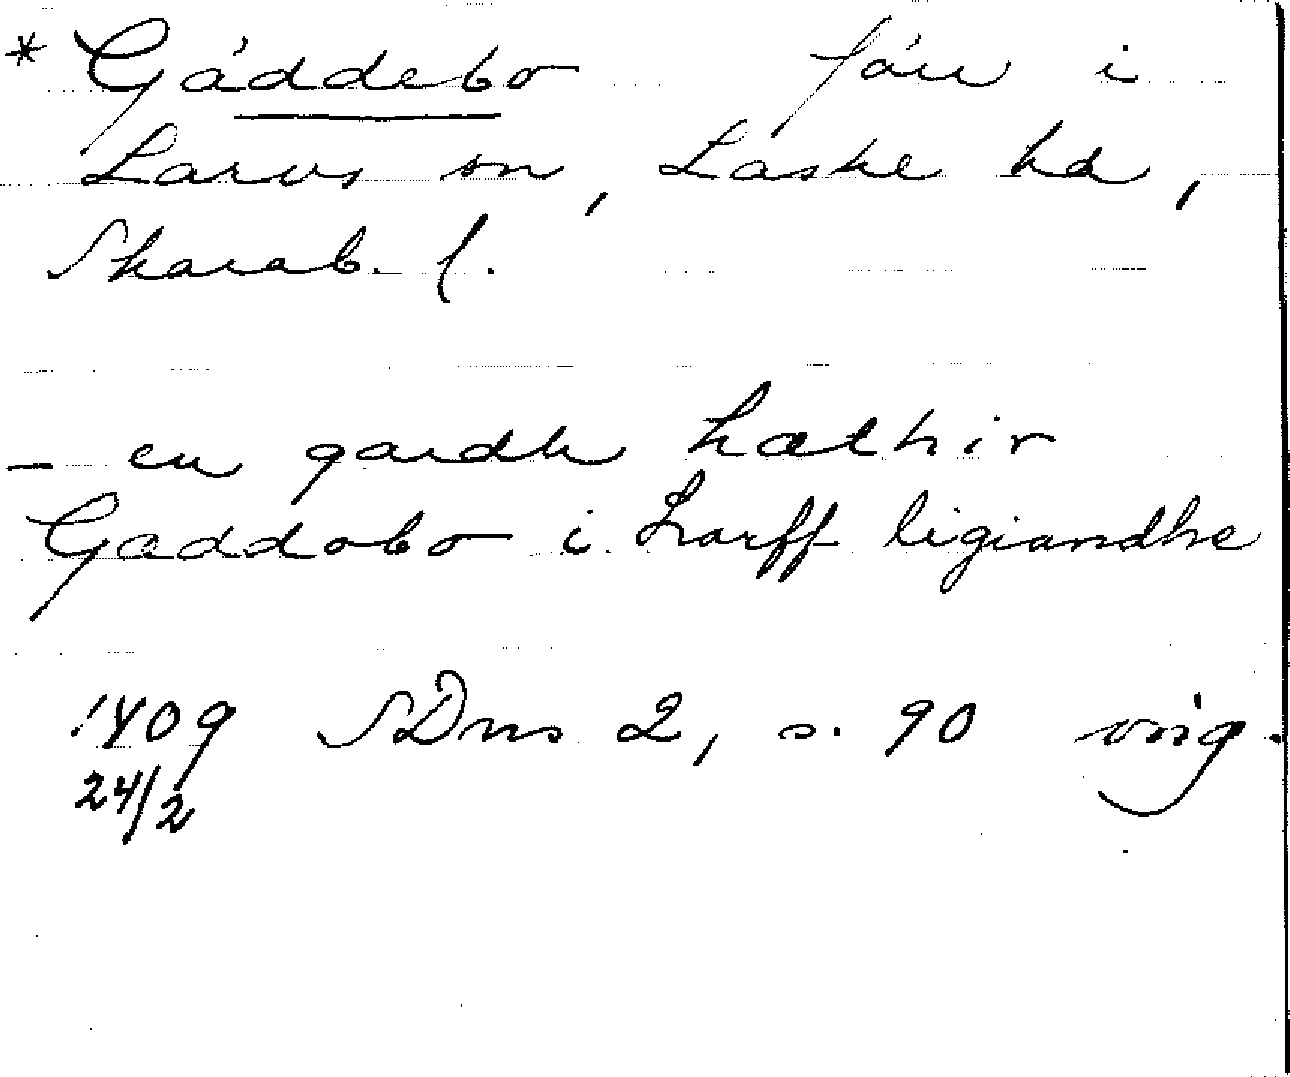 * Gáddebo förr i
Larvs sn, Laske hd,
Skarab. l.
- en gardh hæthir
Gaddobo i Larff ligiandhe
1409 SDns 2, s. 90 orig.
24/2